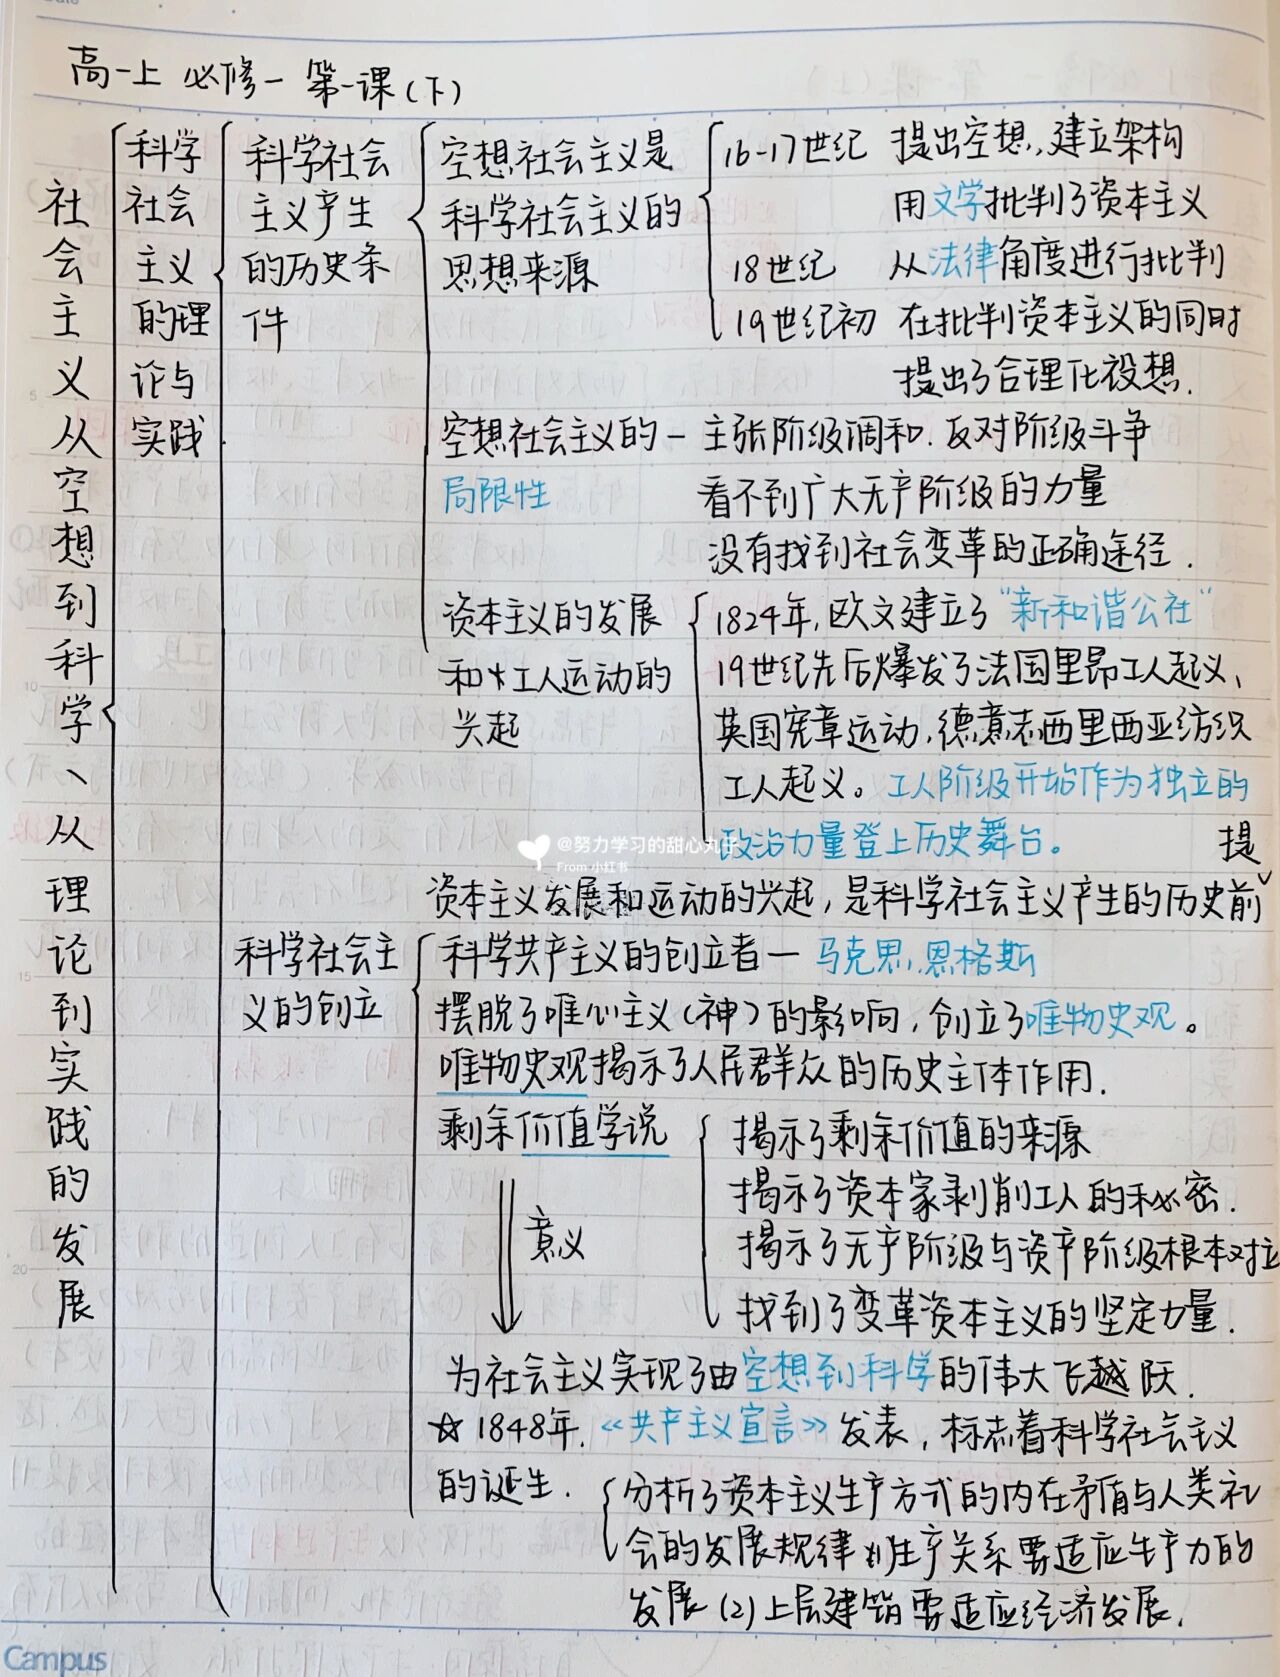 高一上 必修一 第一课(下)
社会主义从空想到科学、从理论到实践的发展
科学
社会
主义
的理
论与
实践
科学社会
主义产生
的历史条
件
空想社会主义是
科学社会主义的
思想来源
16-17世纪 提出空想,建立架构
用文学批判了资本主义
18世纪 从法律角度进行批判
19世纪初 在批判资本主义的同时
提出了合理化设想.
空想社会主义的 — 主张阶级调和.反对阶级斗争
局限性
看不到广大无产阶级的力量
没有找到社会变革的正确途径.
资本主义的发展
和工人运动的
兴起
1824年,欧文建立了"新和谐公社"
19世纪先后爆发了法国里昂工人起义、
英国宪章运动,德意志西里西亚纺织
工人起义。工人阶级开始作为独立的
政治力量登上历史舞台。
@努力学习的甜心丸子
From 小红书
提
资本主义发展和运动的兴起,是科学社会主义产生的历史前
科学社会主
义的创立
科学共产主义的创立者 — 马克思,恩格斯
摆脱了唯心主义(神)的影响,创立了唯物史观。
唯物史观揭示了人民群众的历史主体作用.
剩余价值学说
意义
揭示了剩余价值的来源
揭示了资本家剥削工人的秘密.
揭示了无产阶级与资产阶级根本对立
找到了变革资本主义的坚定力量.
为社会主义实现了由空想到科学的伟大飞越跃.
☆1848年.《共产主义宣言》发表,标志着科学社会主义
的诞生.
分析了资本主义生产方式的内在矛盾与人类社
会的发展规律 (1)生产关系要适应生产力的
发展 (2)上层建筑要适应经济发展.
Campus
5
10
15
20